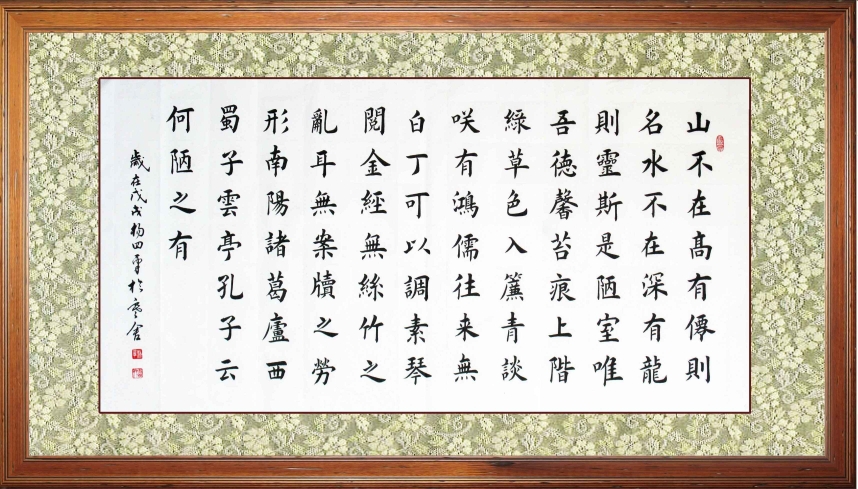 山不在高有僊則
名水不在深有龍
則靈斯是陋室唯
吾德馨苔痕上階
綠草色入簾青談
咲有鴻儒往来無
白丁可以調素琴
閱金經無絲竹之
亂耳無案牘之勞
形南陽諸葛廬西
蜀子雲亭孔子云
何陋之有
歲在戊戌